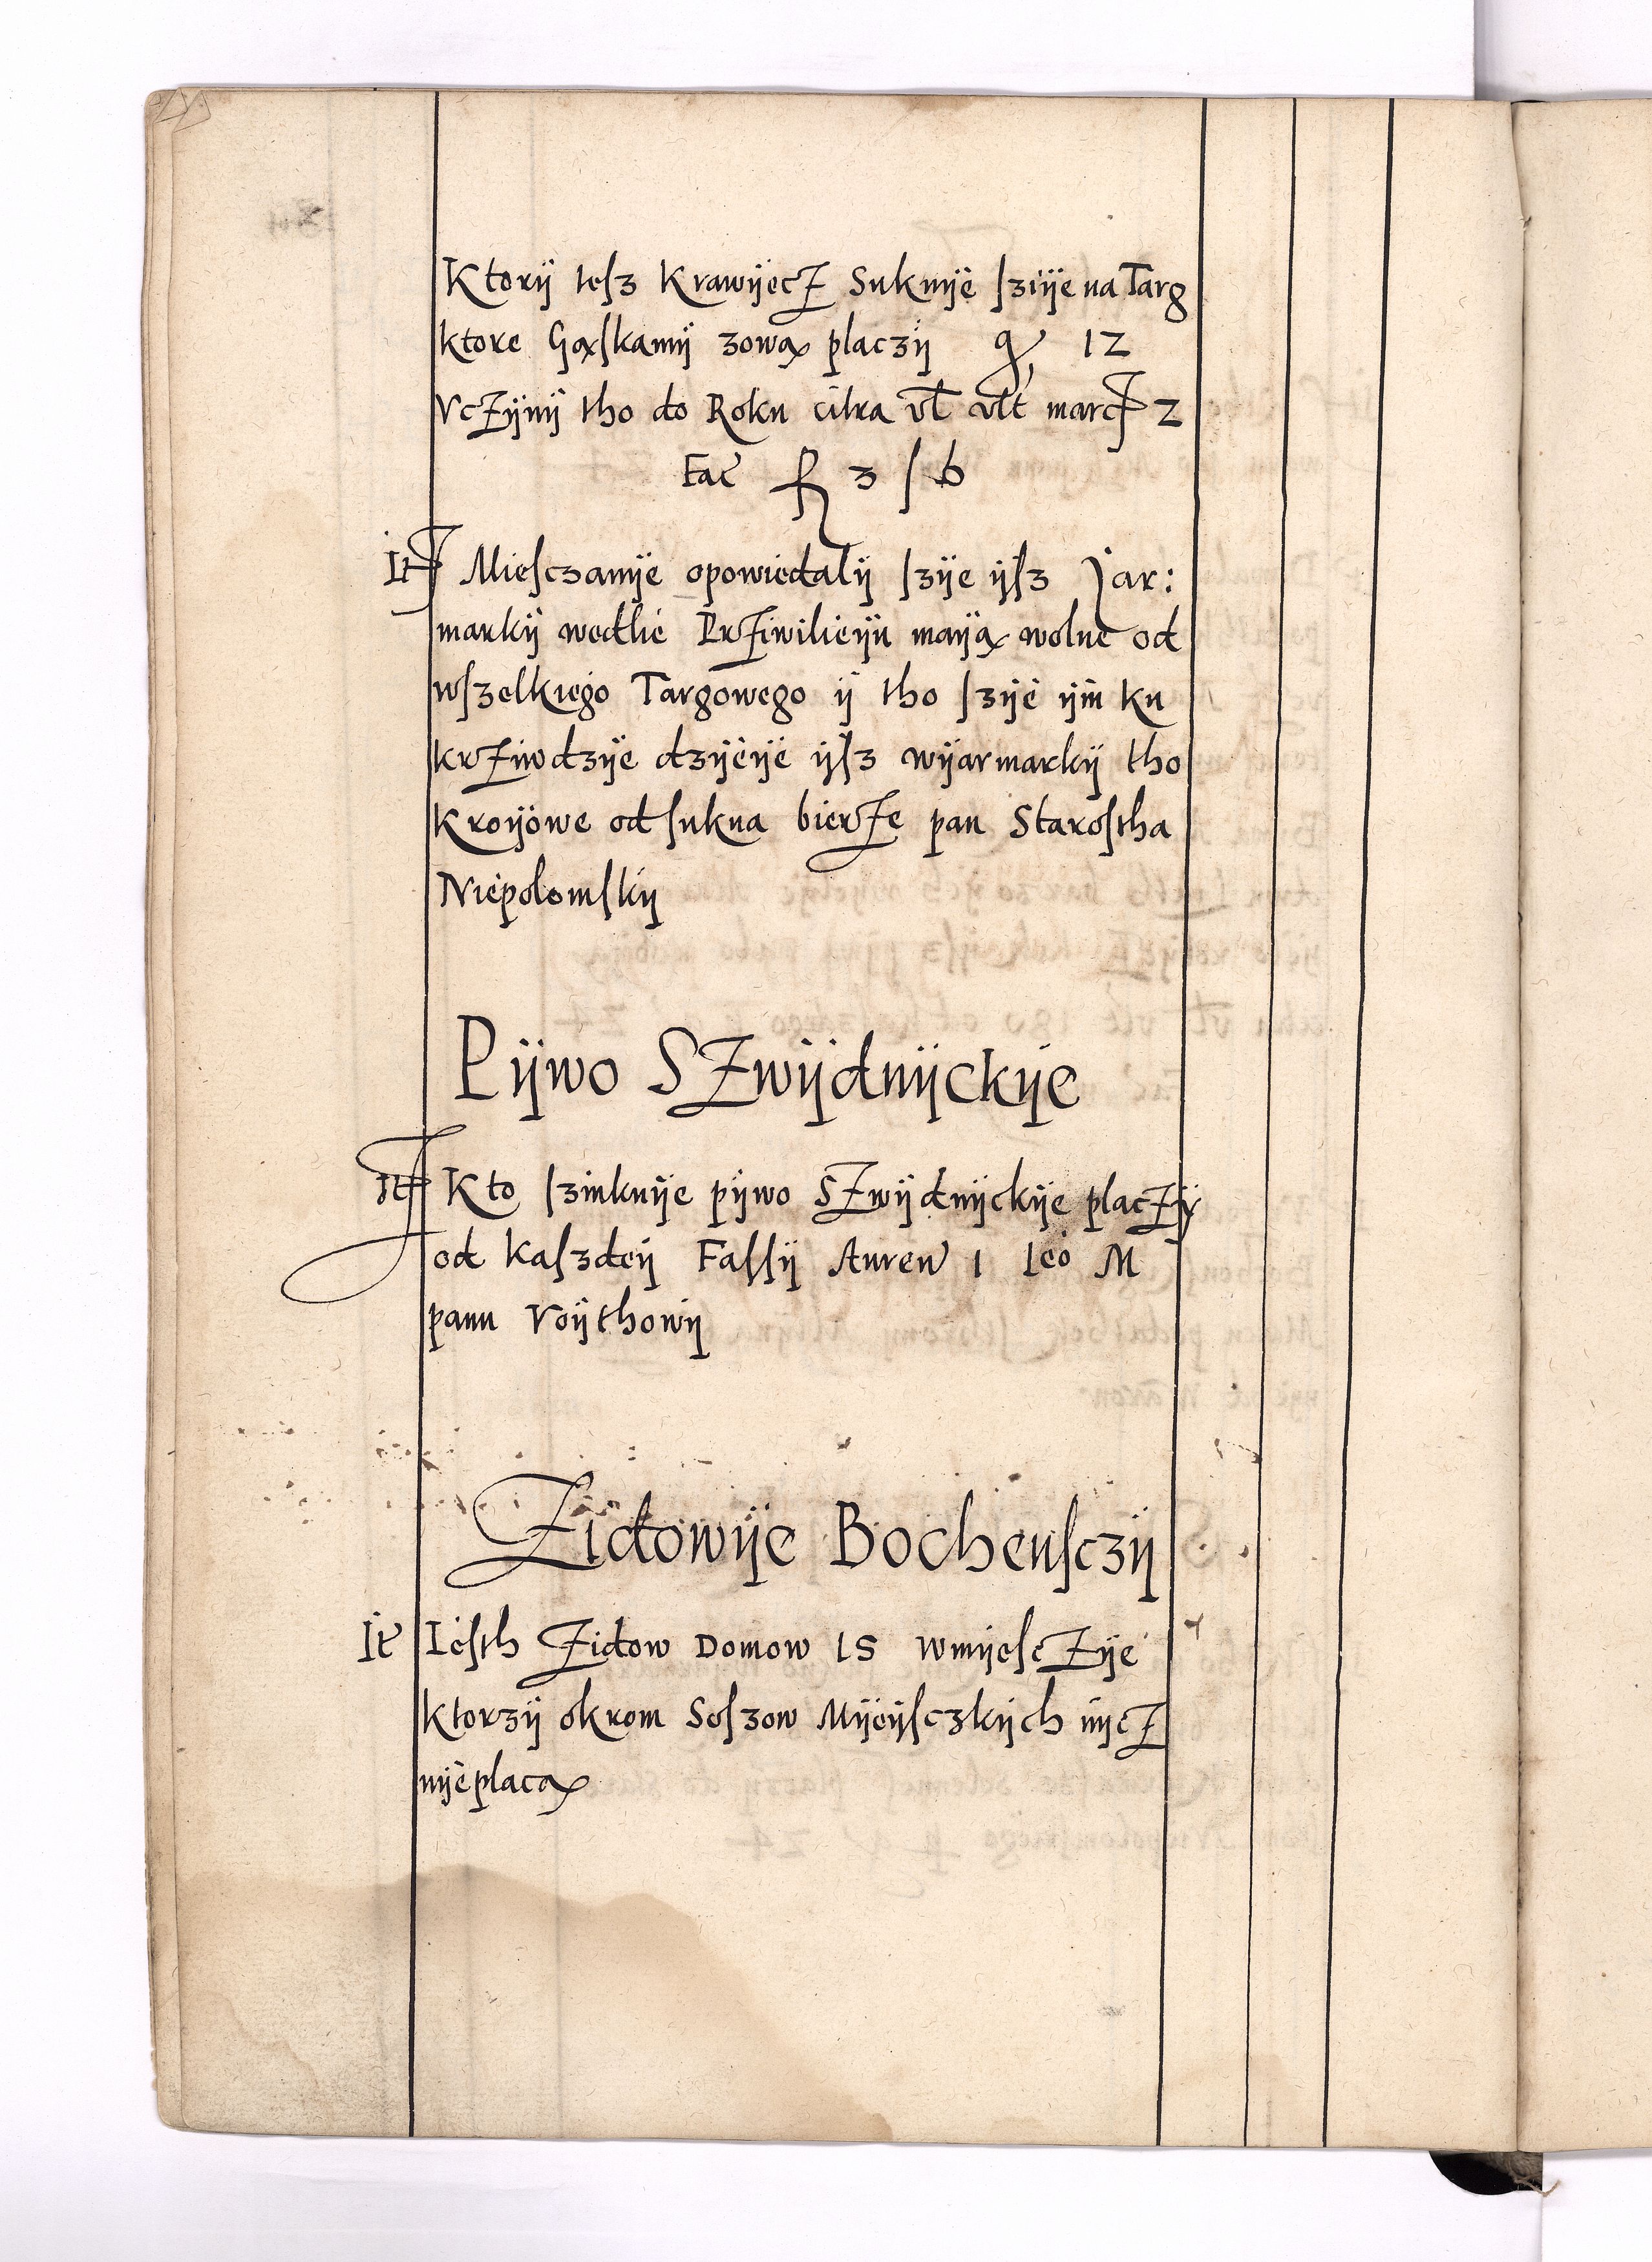 Ktorÿ tesz Krawÿecz Suknÿe szÿe na Targ
ktore Gąskamÿ zową placzÿ gͬ 12
Vczÿnÿ tho do Roku citra vl̄ vlt̄ marcͫ 2
Facͭ f 3 / 6
Itͫ Miesczanÿe opowiedalÿ szÿe ÿsz Jar:
markÿ wedlie Przÿwilieÿu maÿą wolne od
wszelkiego Targowego ÿ tho szÿe ÿm ku
krzÿwdzÿe dzÿeÿe ÿsz wÿarmarkÿ tho
kroÿowe od sukna bierze pan Starostha
Niepolomskÿ
Pÿwo Szwÿdnÿckÿe
Itͫ Kto szinkuÿe pÿwo Szwÿdnÿckÿe placzÿ
od kaszdeÿ Fassÿ Aureu 1 Ieo M
panu Voÿthowÿ
Zidowÿe Bochensczÿ
It Iesth Zidow Domow 15 wmÿesczÿe
ktorzÿ okrom Soszow Mÿeÿsczkÿch nÿcz
nÿe placą